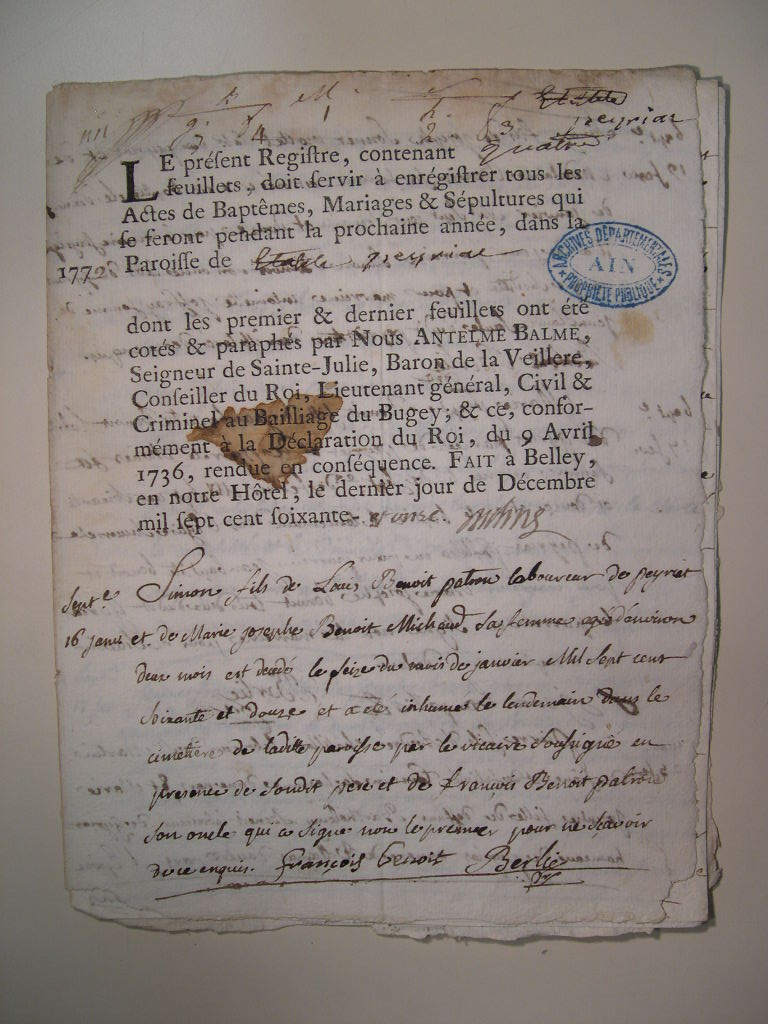 B M 1
9 7 4 2 3 peyriat
LE préſent Regiſtre, contenant quatre
feuillets, doit ſervir à enrégiſtrer tous les
Actes de Baptêmes, Mariages & Sépultures qui
ſe feront pendant la prochaine année, dans la
1772 Paroiſſe de peyriat
ARCHIVES DÉPARTEMENTALES
AIN
PROPRIÉTÉ PUBLIQUE
dont les premier & dernier feuillets ont été
cotés & paraphés par Nous ANTELME BALME,
Seigneur de Sainte-Julie, Baron de la Veillere,
Conſeiller du Roi, Lieutenant général, Civil &
Criminel au Bailliage du Bugey; & ce, confor-
mément à la Déclaration du Roi, du 9 Avril
1736, rendue en conſéquence. FAIT à Belley,
en notre Hôtel, le dernier jour de Décembre
mil ſept cent ſoixante- et onze.
Sept.e Simon fils de Louis Benoit patron laboureur de peyriat
16 janv et de Marie josephe Benoit Michaud sa femme agé d'environ
deux mois est decedé le seize du mois de janvier Mil sept cent
soixante et douze et a été inhumé le lendemain dans le
cimetiere de ladite paroisse par le vicaire soussigné en
presence de soudit pere et de françois Benoit patron
son oncle qui a signé non le premier pour ne sçavoir
de ce enquis. françois benoit Berlie